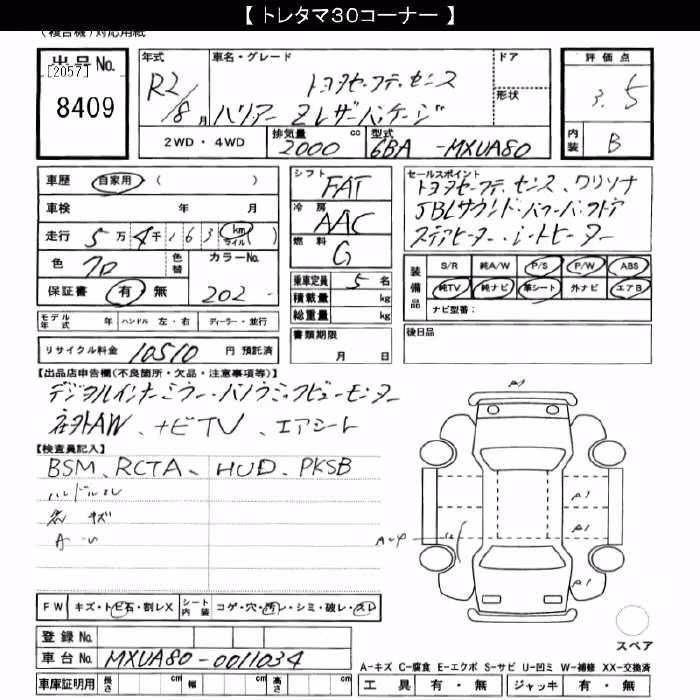 【 トレタマ30コーナー 】
(複合機)対応用紙
出品No.
[2057]
8409
年式
R2/8月
車名・グレード
トヨタセーフティセンス
ハリアー Zレザーパッケージ
ドア
形状
評価点
3.5
内装
B
2WD・4WD
排気量 cc
2000
型式
6BA-MXUA80
車歴 自家用 ( )
車検 年 月
走行 5万4千163 km マイル ( )
色
色替
カラーNo.
202-
保証書 有 無
モデル年式 年 ハンドル 左・右 ディーラー・並行
リサイクル料金 10510 円 預託済
シフト
FAT
冷房
AAC
燃料
G
乗車定員 5 名
積載量 kg
総重量 kg
書類期限
月 日
セールスポイント
トヨタセーフティセンス、クリソナ
JBLサウンド・パワーバックドア
ステアヒーター・シートヒーター
装備品
S/R 純A/W P/S P/W ABS
純TV 純ナビ 革シート 外ナビ エアB
ナビ型番:
後日品
【出品店申告欄(不良箇所・欠品・注意事項等)】
デジタルインナーミラー・パノラミックビューモニター
社外AW、ナビTV、エアシート
【検査員記入】
BSM、RCTA、HUD、PKSB
ハンドルスレ
キズ
A-U
A-4
A1
A1
A1
A1
FW キズ・トビ石・割レX シート内装 コゲ・穴・汚レ・シミ・破レ・スレ
スペア
登録No.
車台No. MXUA80-0011034
車庫証明用 長さ cm 幅 cm 高さ cm
A-キズ C-腐食 E-エクボ S-サビ U-凹ミ W-補修 XX-交換済
工具 有・無 ジャッキ 有・無